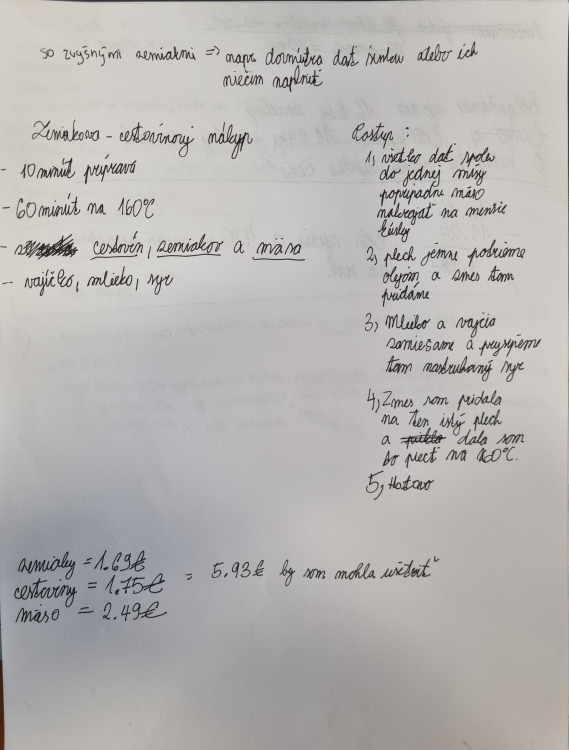 so zvyšnými zemiakmi => napr. dovnútra dať šunku alebo ich
niečím naplniť
Zemiakovo - cestovinový nákyp
- 10 minút príprava
- 60 minút na 160°C
- cestovín, zemiakov a mäsa
- vajíčko, mlieko, syr
Postup :
1, všetko dať spolu
do jednej misy
poprípadne mäso
nakrájať na menšie
kúsky
2, plech jemne potrieme
olejom a zmes tam
pridáme
3, Mlieko a vajcia
zamiešame a prysypeme
tam nastrúhaný syr
4, Zmes som pridala
na ten istý plech
a dala som
to piecť na 160°C.
5, Hotovo
zemiaky = 1.69€
cestoviny = 1.75€
mäso = 2.49€
= 5.93€ by som mohla ušetriť